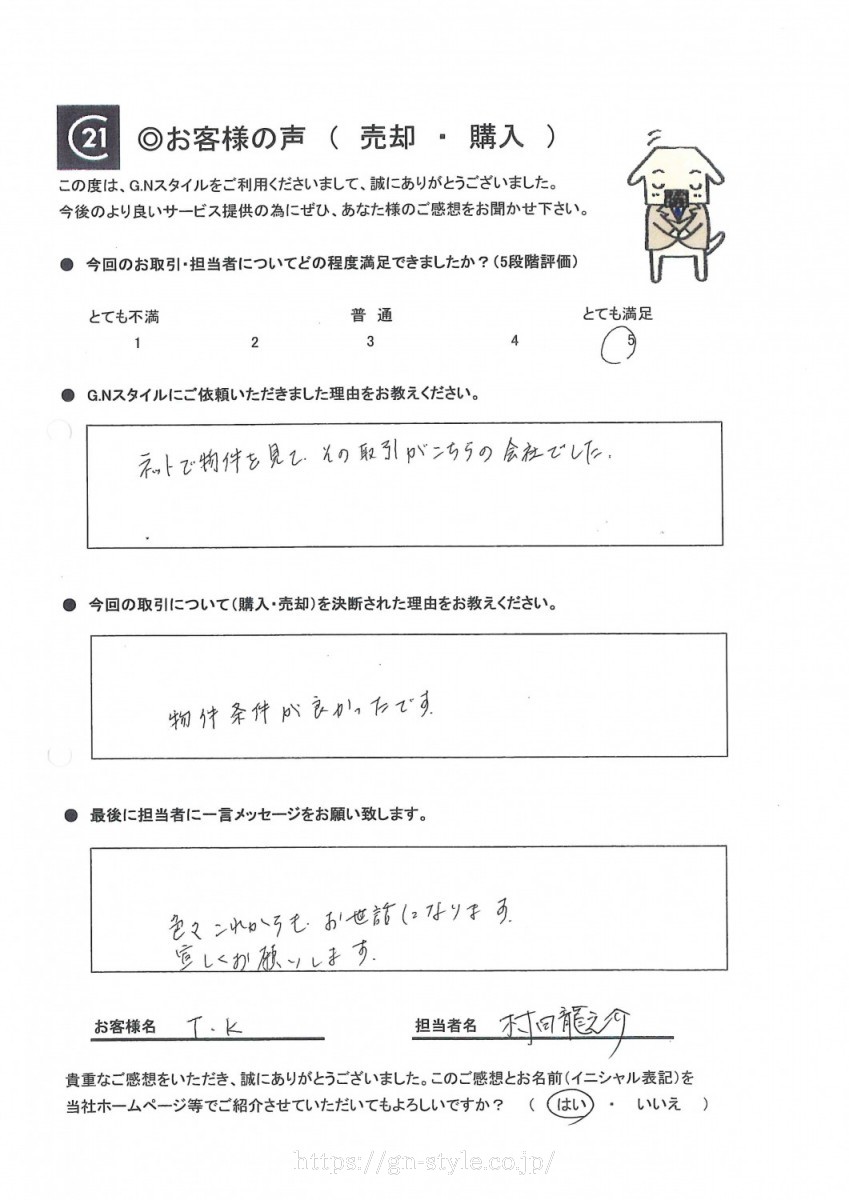 C21 ◎お客様の声 ( 売却 ・ 購入 )
この度は、G.Nスタイルをご利用くださいまして、誠にありがとうございました。
今後のより良いサービス提供の為にぜひ、あなた様のご感想をお聞かせ下さい。
● 今回のお取引・担当者についてどの程度満足できましたか？(5段階評価)
とても不満 普 通 とても満足
1 2 3 4 5
● G.Nスタイルにご依頼いただきました理由をお教えください。
ネットで物件を見て、その取引がこちらの会社でした。
● 今回の取引について(購入・売却)を決断された理由をお教えください。
物件条件が良かったです。
● 最後に担当者に一言メッセージをお願い致します。
色々これからも、お世話になります。
宜しくお願いします。
お客様名 T.K 担当者名 村田龍之介
貴重なご感想をいただき、誠にありがとうございました。このご感想とお名前(イニシャル表記)を
当社ホームページ等でご紹介させていただいてもよろしいですか？ ( はい ・ いいえ )
https://gn-style.co.jp/